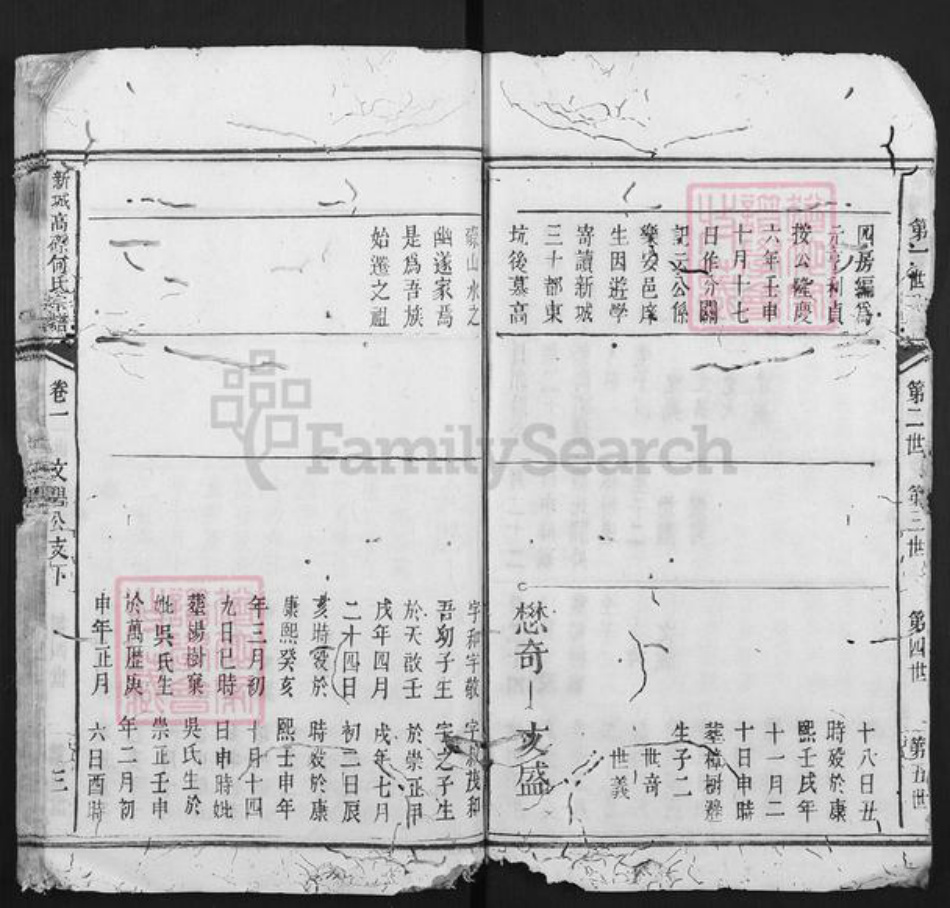 第一世
第二世
第三世
第四世
第五世
四房編爲
元亨利貞
按公隆慶
六年壬申
十月十七
日作分關
記云公係
樂安邑庠
生因遊學
寄讀新城
三十部東
坑後慕高
磜山水之
幽遂家焉
是爲吾族
始遷之祖
十八日丑
時殁於康
熙壬戌年
十一月二
十日申時
葬樟樹
生子二
世奇
世義
懋奇
文盛
字和宇敬
吾幼子生
於天啟壬
戌年四月
二十四日
亥時殁於
康熙癸亥
年三月初
九日巳時
葬湯樹窠
妣吳氏生
於萬歷庚
申年正月
字茂和
字之子生
於崇正甲
戌年七月
初二日辰
時殁於康
熙壬申年
十月十四
日申時妣
吳氏生於
崇正壬申
年二月初
六日酉時
新城高磜何氏宗譜
卷一
公支下
三
FamilySearch